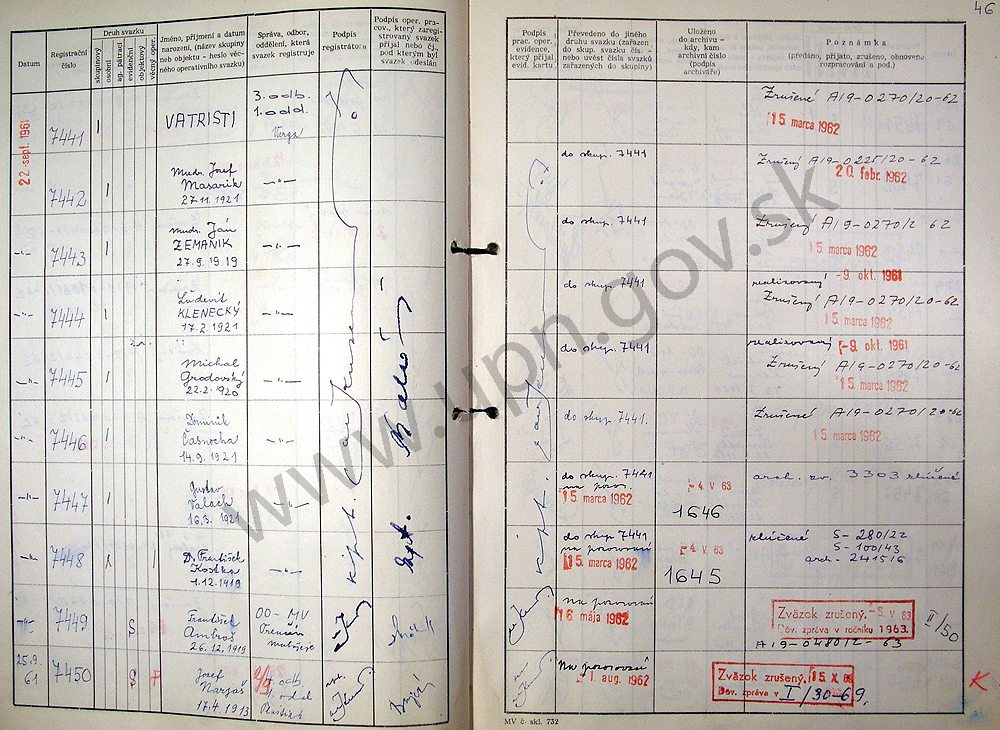 46
Datum
Registrační číslo
Druh svazku
skupinový
osobní
ag. pátrací
evidenční
objektový
věcný oper.
Jméno, příjmení a datum
narození, (název skupiny
neb objektu - heslo věc-
ného operativního svazku)
Správa, odbor,
oddělení, která
svazek registruje
Podpis
registrátora
Podpis oper. prac-
cov., který zaregi-
strovaný svazek
přijal nebo čj.,
pod kterým byl
svazek odeslán
Podpis
prac. oper.
evidence,
který přijal
evid. kartu
Převedeno do jiného
druhu svazku (zařazen
do skup. svazku čís. -
nebo uvést čísla svazků
zařazených do skupiny)
Uloženo
do archivu -
kdy, kam
archivní číslo
(podpis
archiváře)
Poznámka
(předáno, přijato, zrušeno, obnoveno
rozpracování a pod.)
22. sept. 1961
7441
1
VATRISTI
3. odb.
1. odd.
Verga
Zrušené A19-0270/20-62
15. marca 1962
7442
1
Mudr. Josef
Masarik
27.11.1921
—"—
do skup. 7441
Zrušený A19-0225/20-62
20. febr. 1962
—"—
7443
1
mudr. Ján
ZEMANIK
27.9.1919
—"—
do skup. 7441
Zrušený A19-0270/2 62
15. marca 1962
—"—
7444
1
Ľudevít
KLENECKÝ
17.2.1921
—"—
do skup. 7441
realizovaný -9. okt. 1961
Zrušený A19-0270/20-62
15. marca 1962
—"—
7445
1
Michal
Grodovský
22.2.1920
—"—
do skup. 7441
realizovaný -9. okt. 1961
Zrušený A19-0270/20-62
15. marca 1962
—"—
7446
1
Dominik
Časnocha
14.9.1921
—"—
do skup. 7441.
Zrušené A19-0270/20-62
15. marca 1962
—"—
7447
1
Gustav
Valach
16.3.1921
—"—
do skup. 7441
na poroz.
15. marca 1962
-4 V 63
1646
arch. zv. 3303 skúčené
—"—
7448
1
Dr. František
Kostka
1.12.1919
—"—
do skup. 7441
na porovaní
15. marca 1962
-4 V. 63
1645
S-280/22
S-100/43
arch- 241516
—"—
7449
S
František
Ambroš
26.12.1919
OO - MV
Trenčín
na pozorovaní
16. mája 1962
Zväzok zrušený. -5 V 63
Dôv. zpráva v ročníku 1963.
A19-0480/2-63
II/50
25.9.
61
7450
S
Josef
Narjaš
17.4.1913
4. odb
1. odd
kpt.
Na pozorovaní
-1. aug. 1962
Zväzok zrušený, 15. X 69
Dôv. zpráva v I/30-69.
K
kpt.
MV č. skl. 732
www.upn.gov.sk